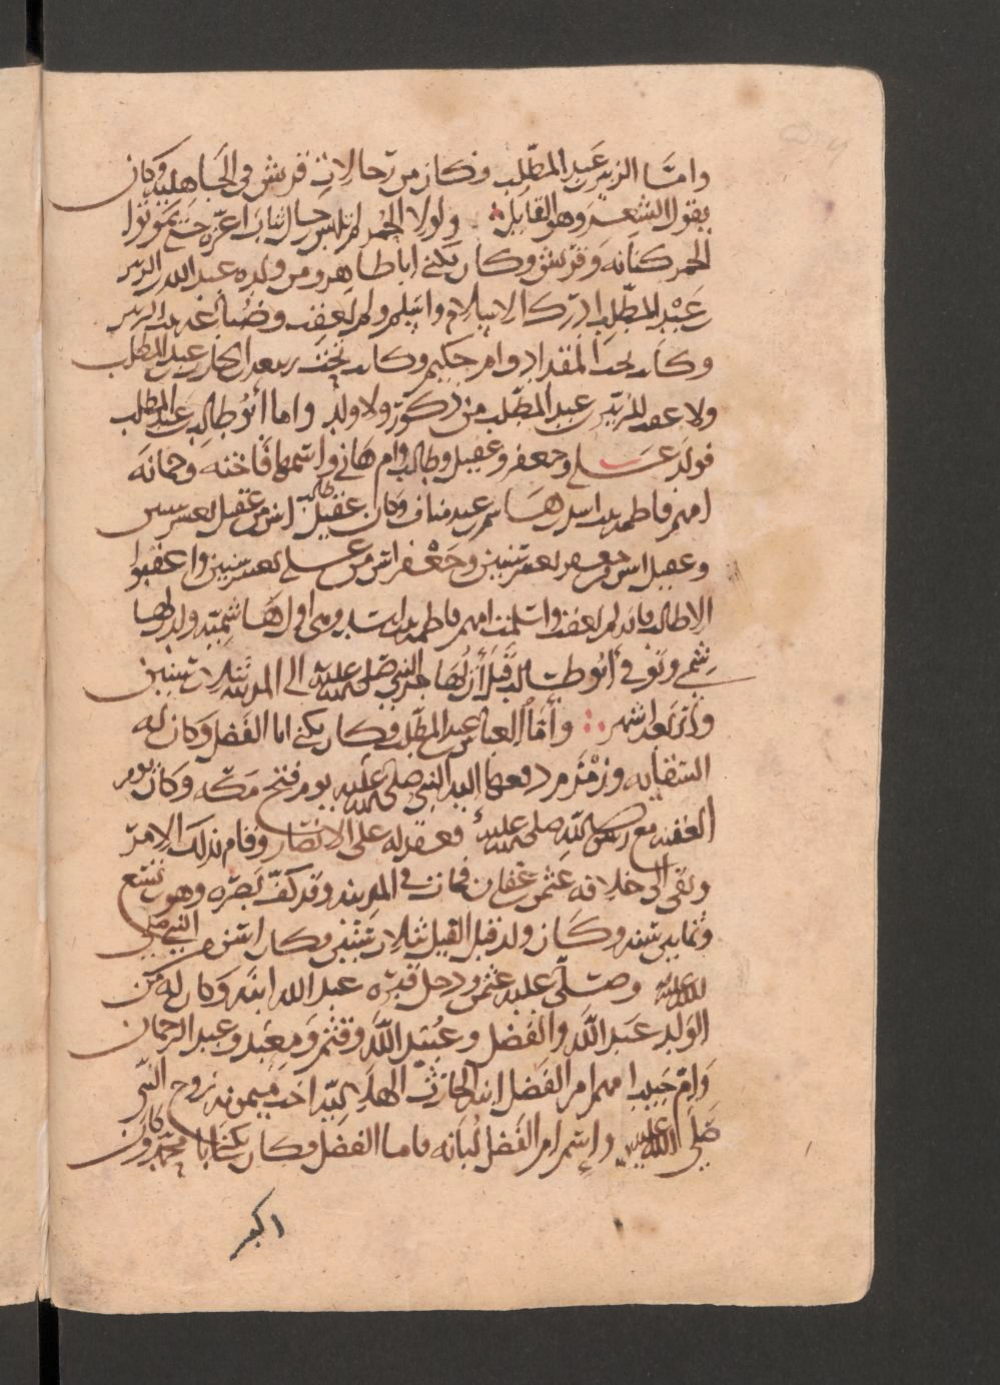 واما الزبير عبد المطلب وكان من رجالات قريش في الجاهلية وكان
يقول الشعر وهو القايل ولولا الحمس لم تلبس رجال ثياب اعزة حتى يموتوا
الحمس كنانه وقريش وكان يكنى ابا طاهر ومن ولده عبد الله الزبير
عبد المطلب ادرك الاسلام واسلم ولم يعقب وضباعه بنت الزبير
وكانت تحت المقداد وام حكيم وكانت تحت ربيعه الحارث عبد المطلب
ولا عقب للزبير عبد المطلب من ذكر ولا ولد واما ابو طالب عبد المطلب
فولد على وجعفر وعقيل وطالب وام هاني واسمها فاخته وجمانه
امهم فاطمه بنت اسد هاشم عبد مناف وكان طالب اسن من عقيل بعشر سنين
وعقيل اسن من جعفر بعشر سنين وجعفر اسن من على بعشر سنين واعقبوا
الا طالب فانه لم يعقب واسلمت امهم فاطمه بنت اسد وهى اول هاشميه ولدت لها
شمي وتوفي ابو طالب قبل ان يهاجر النبي صلى الله عليه الى المدينه بثلاث سنين
واربعه اشهر واما العباس عبد المطلب فكان يكنى ابا الفضل وكان له
السقايه وزمزم دفعها اليه النبي صلى الله عليه يوم فتح مكه وكان يوم
العقبه مع رسول الله صلى الله عليه فعقد له على الانصار وقام بذلك الامر
وبقى الى خلافه عثمن عفان فمات في المدينه وقد كف بصره وهو تسع
وثمانين سنه وكان ولد قبل الفيل بثلاث سنين وكان اسن من النبي صلى
الله عليه وصلى عليه عثمن ودخل قبره عبد الله ابنه وكان له من
الولد عبد الله والفضل وعبيد الله وقثم ومعبد وعبد الرحمان
وام حبيب امهم ام الفضل ابنه الحارث الهلاليه اخت ميمونه زوج النبي
صلى الله عليه واسم ام الفضل لبابه فاما الفضل فكان يكنا ابا محمد وكان
اكبر